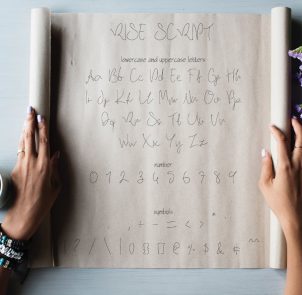 RISE SCRIPT
lowercase and uppercase letters
Aa Bb Cc Dd Ee Ff Gg Hh
Ii Jj Kk Ll Mm Nn Oo Pp
Qq Rr Ss Tt Uu Vv
Ww Xx Yy Zz
number
0 1 2 3 4 5 6 7 8 9
symbols
, + - = < >